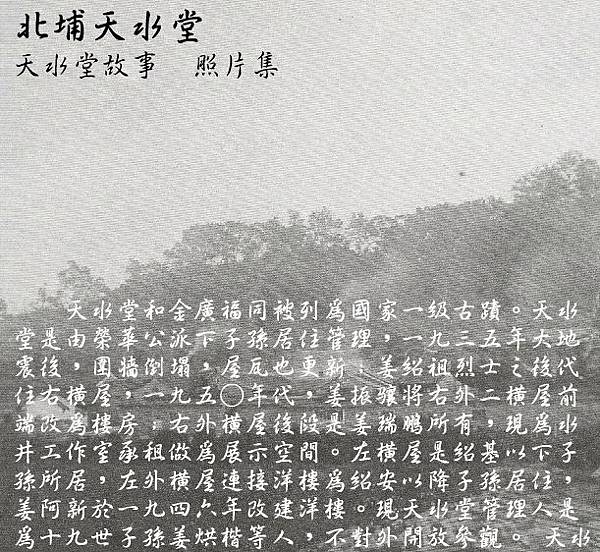 北埔天水堂
天水堂故事　照片集
天水堂和金廣福同被列為國家一级古蹟。天水
堂是由榮華公派下子孫居住管理，一九三五年大地
震後，圍牆倒塌，屋瓦也更新；姜紹祖烈士之後代
住右橫屋，一九五〇年代，姜振驤將右外二橫屋前
端改為樓房；右外橫屋後段是姜瑞鵬所有，現為水
井工作室承租做為展示空間。左橫屋是紹基以下子
孫所居，左外橫屋連接洋樓為紹安以降子孫居住，
姜阿新於一九四六年改建洋樓。現天水堂管理人是
為十九世子孫姜烘楷等人，不對外開放參觀。 天水